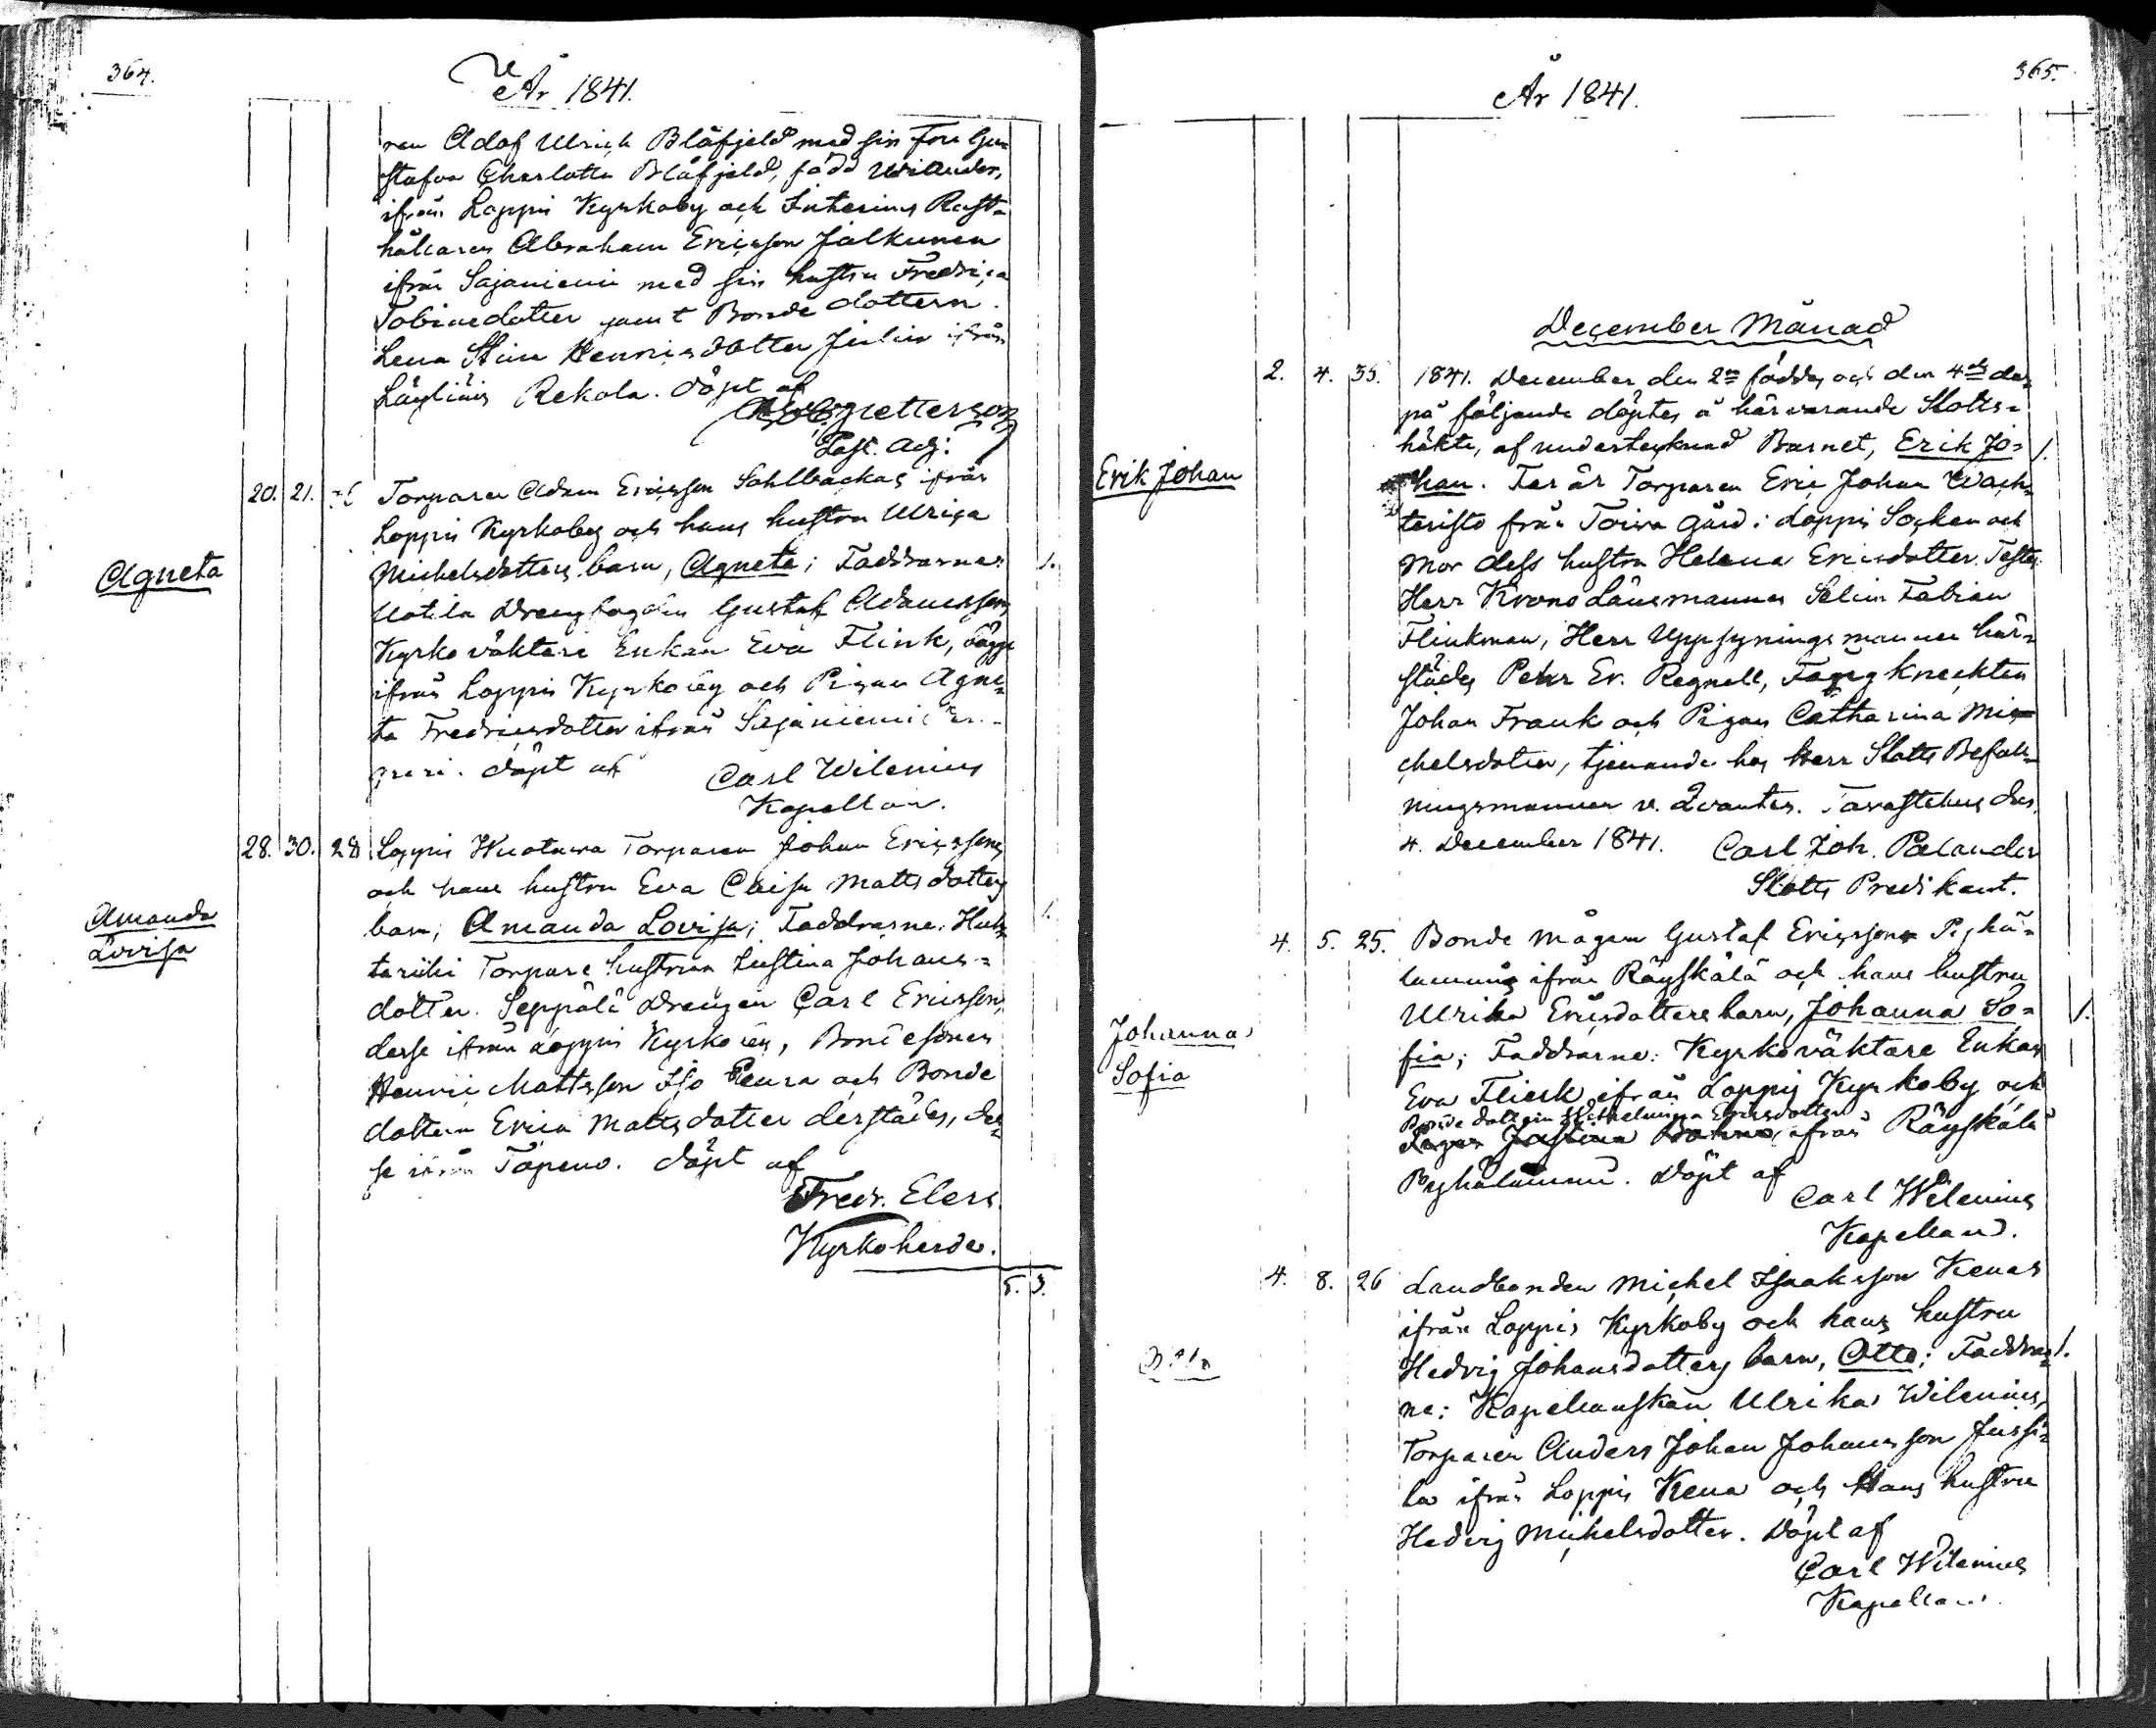 364.
År 1841.
ren Adof Ulrich Blåfjeld med sin Fru Gu=
stafva Charlotta Blåfjeld, född Willander,
ifrån Loppis Kyrkoby och Interims Rust=
hållaren Abraham Ericsson Jalkunen
ifrån Sajaniemi med sin hustru Fredrica
Tobiaedotter samt Bonde dottern
Lena Stina Henricsdotter Julin ifrån
Läyliäis Rekola. döpt af
Past. Adj.
20. 21. Torparen Adam Ericsson Sahlbackas ifrån
Loppis Kyrkoby och hans hustru Ulrica
Agneta
Michelsdotters barn, Agneta; Faddrarne: 1.
Uotila Drengfogden Gustaf Adamsson
Kyrkoväktare Enkan Eva Flink, bägge
ifrån Loppis Kyrkoby och Pigan Agne=
ta Fredricsdotter ifrån Sajaniemi
döpt af Carl Wilenius
Kapellan.
28. 30. 28 Loppis Torparen Johan Ericssons
och hans hustru Eva Caisa Mattsdotters
Amanda
Lovisa
barn, Amanda Lovisa; Faddrarne: 1.
Torpare hustrun Justina Johans=
dotter. Seppälä Drengen Carl Ericsson,
desse ifrån Loppis Kyrkoby, Bondesonen
Henric Mattsson Iso Peura och Bonde
dottern Erica Mattsdotter derstädes, des=
se ifrån Topeno. döpt af
Fredr. Elers.
Kyrkoherde.
5. 3.
365.
År 1841.
December Månad
2. 4. 35. 1841. December den 2ne föddes och den 4de der=
på följande döptes å härvarande Slotts=
häkte, af undertecknad Barnet, Erik Jo= 1.
Erik Johan
han. Far är Torparen Eric Johan Wach=
teristo från Toivo Gård i Loppis Socken och
Mor dess hustru Helena Ericsdotter. Testes
Herr Krono Länsmannen Selim Fabian
Flinkman, Herr Uppsyningsmannen här=
städes Pehr Er. Regnell, Fångknechten
Johan Frank och Pigan Catharina Mi=
chelsdotter, tjenande hos Herr Slotts Befall=
ningsmannen v. Qvanten. Tavastehus den
4. December 1841. Carl Joh. Palander
Slotts Predikant.
4. 5. 25. Bonde mågen Gustaf Ericssons Pyhä=
lammin ifrån Räyskälä och hans hustru
Johanna
Sofia
Ulrika Ericsdotters barn, Johanna So= 1.
fia; Faddrarne: Kyrkoväktare Enkan
Eva Flink ifrån Loppis Kyrkoby och
Bonde dottern Wilhelmina Ericsdotter
ifrån Räyskälä
Pyhälammi. Döpt af
Carl Wilenius
Kapellan.
4. 8. 26 Landbonden Michel Isaaksson Kenas
ifrån Loppis Kyrkoby och hans hustru
Otto
Hedvig Johansdotters barn, Otto; Faddrar= 1.
ne: Kapellanskan Ulrika Wilenius,
Torparen Anders Johan Johansson Jussi=
la ifrån Loppis Kena och Hans hustru
Hedvig Michelsdotter. Döpt af
Carl Wilenius
Kapellan.